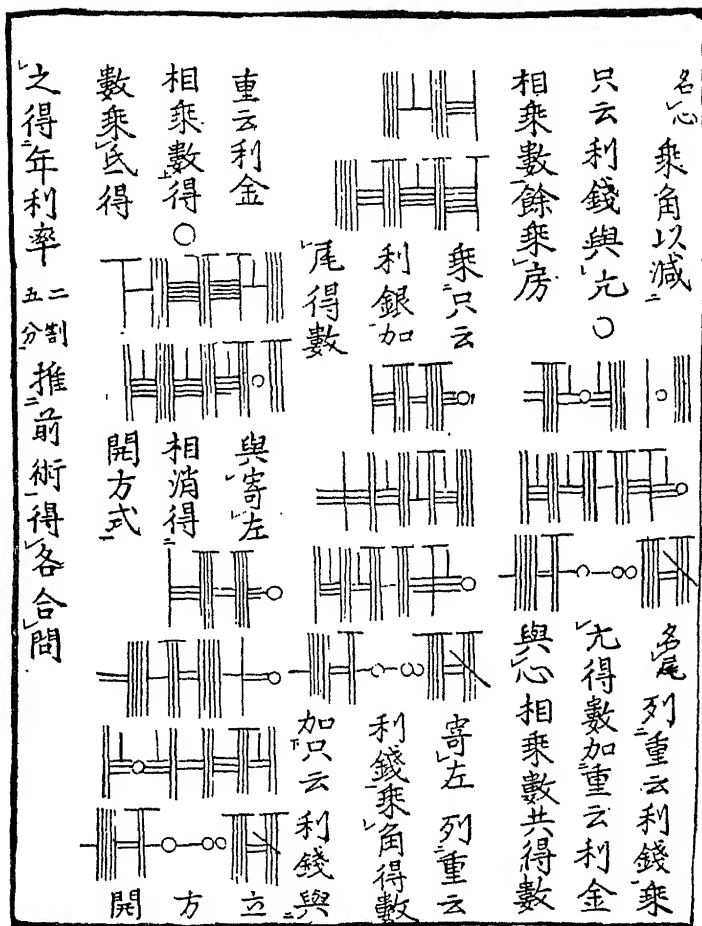 名心 乘角以減
只云利錢與亢
相乘數餘乘房
名尾 列重云利錢乘
亢得數加重云利金
與心相乘數共得數
乘只云
利銀加
尾得數
寄左 列重云
利錢乘角得數
加只云利錢與
重云利金
相乘數得
數乘氐得
與寄左
相消得
開方式
立
方
開
之得年利率 二割五分 推前術得各合問